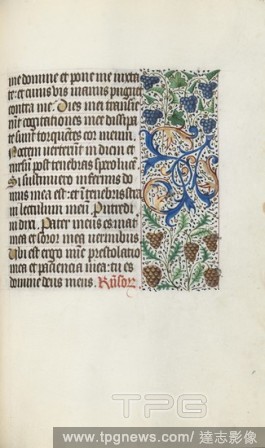 me domine et pone me iuxta
te: et cuius vis manus pugnet
contra me. Dies mei transie
runt cogitationes mee dissipa
te sunt torquentes cor meum.
Noctem verterunt in diem et
rursum post tenebras spero lucem.
Si sustinuero infernus do
mus mea est: et in tenebris stra
vi lectulum meum. Putredi
ni dixi. Pater meus es mat
mea et soror mea vermibus
Ubi est ergo nunc prestolatio
mea et paciencia mea: tu es
domine deus meus. Rusor.
TPG
www.tpgnews.com / 達志影像